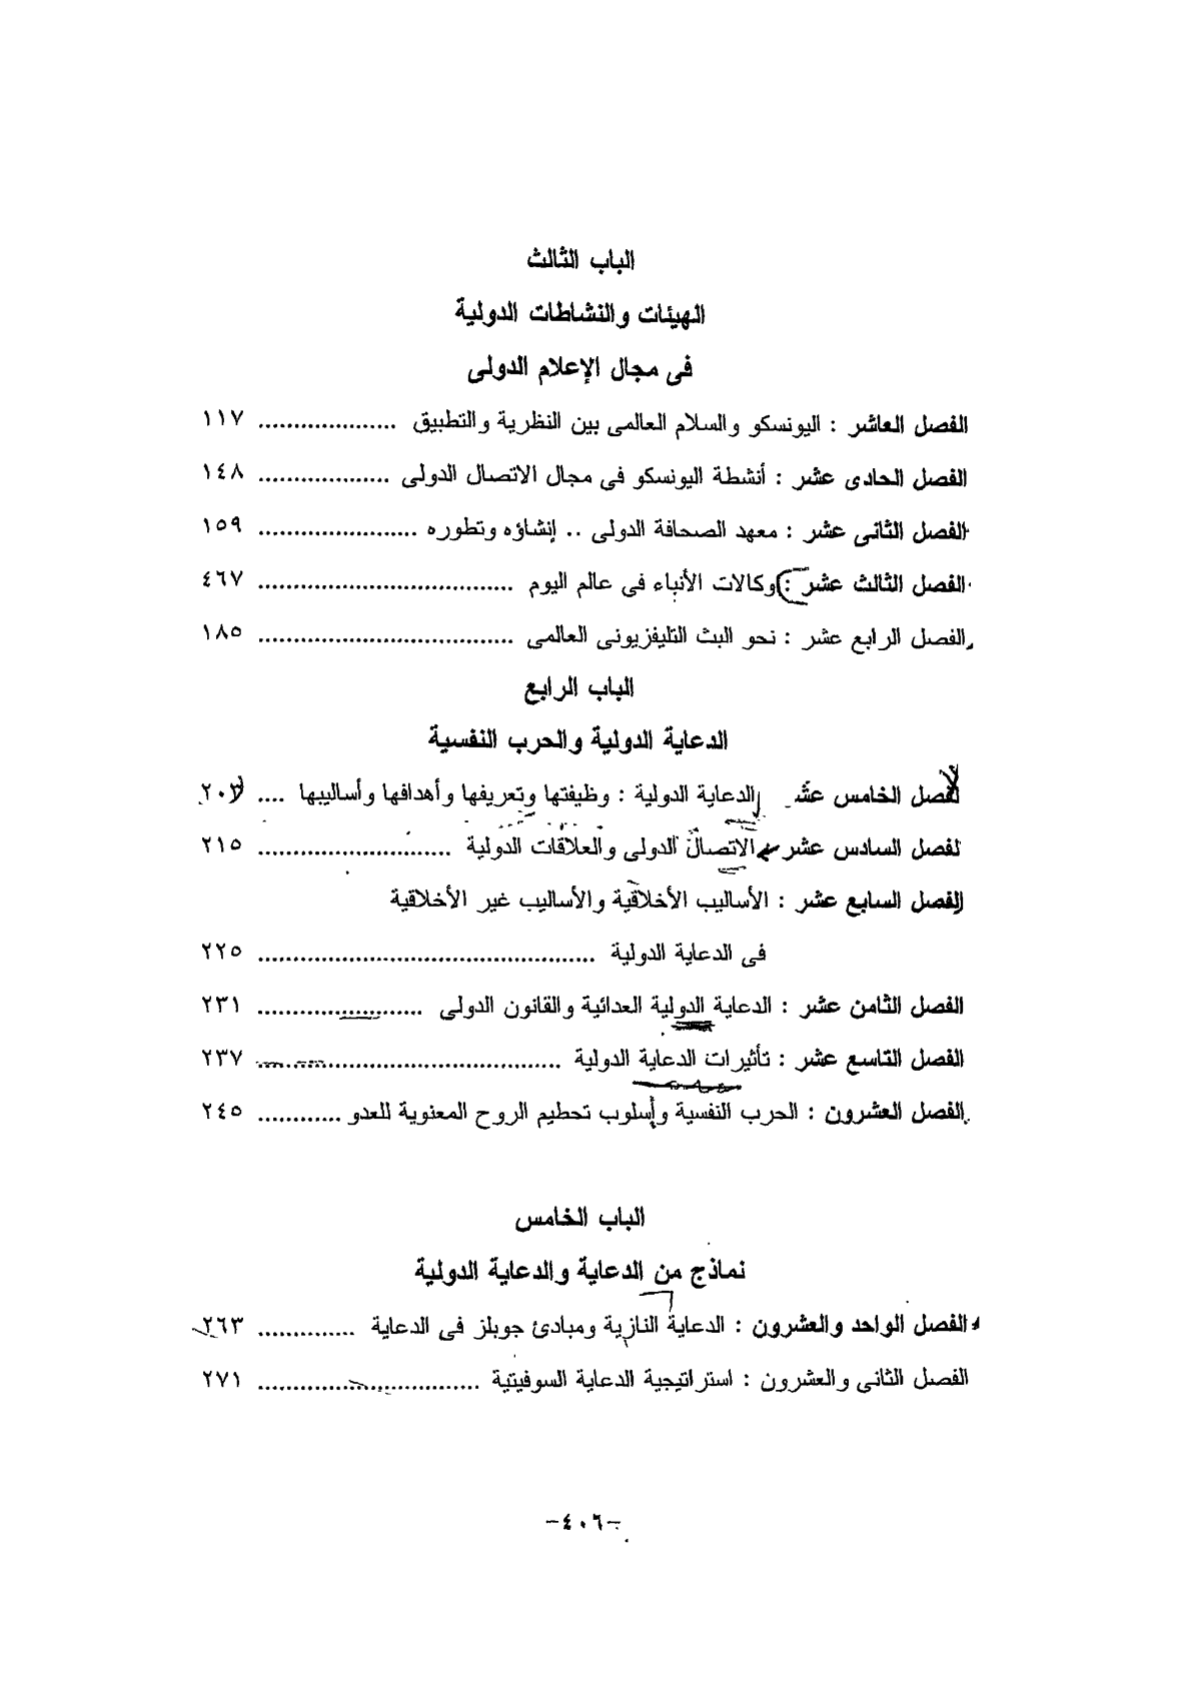 الباب الثالث
الهيئات والنشاطات الدولية
فى مجال الإعلام الدولى
الفصل العاشر : اليونسكو والسلام العالمى بين النظرية والتطبيق .................... ١١٧
الفصل الحادى عشر : أنشطة اليونسكو فى مجال الاتصال الدولى ................... ١٤٨
الفصل الثانى عشر : معهد الصحافة الدولى .. إنشاؤه وتطوره ....................... ١٥٩
الفصل الثالث عشر : وكالات الأنباء فى عالم اليوم .................................... ٤٦٧
الفصل الرابع عشر : نحو البث التليفزيونى العالمى .................................... ١٨٥
الباب الرابع
الدعاية الدولية والحرب النفسية
الفصل الخامس عشر الدعاية الدولية : وظيفتها وتعريفها وأهدافها وأساليبها .... ٢٠٣
لفصل السادس عشر الاتصال الدولى والعلاقات الدولية ............................ ٢١٥
الفصل السابع عشر : الأساليب الأخلاقية والأساليب غير الأخلاقية
فى الدعاية الدولية ................................................ ٢٢٥
الفصل الثامن عشر : الدعاية الدولية العدائية والقانون الدولى ........................ ٢٣١
الفصل التاسع عشر : تأثيرات الدعاية الدولية ........................................... ٢٣٧
الفصل العشرون : الحرب النفسية وأسلوب تحطيم الروح المعنوية للعدو ............ ٢٤٥
الباب الخامس
نماذج من الدعاية والدعاية الدولية
الفصل الواحد والعشرون : الدعاية النازية ومبادئ جوبلز فى الدعاية .............. ٢٦٣
الفصل الثانى والعشرون : استراتيجية الدعاية السوفيتية ................................ ٢٧١
-٤٠٦-